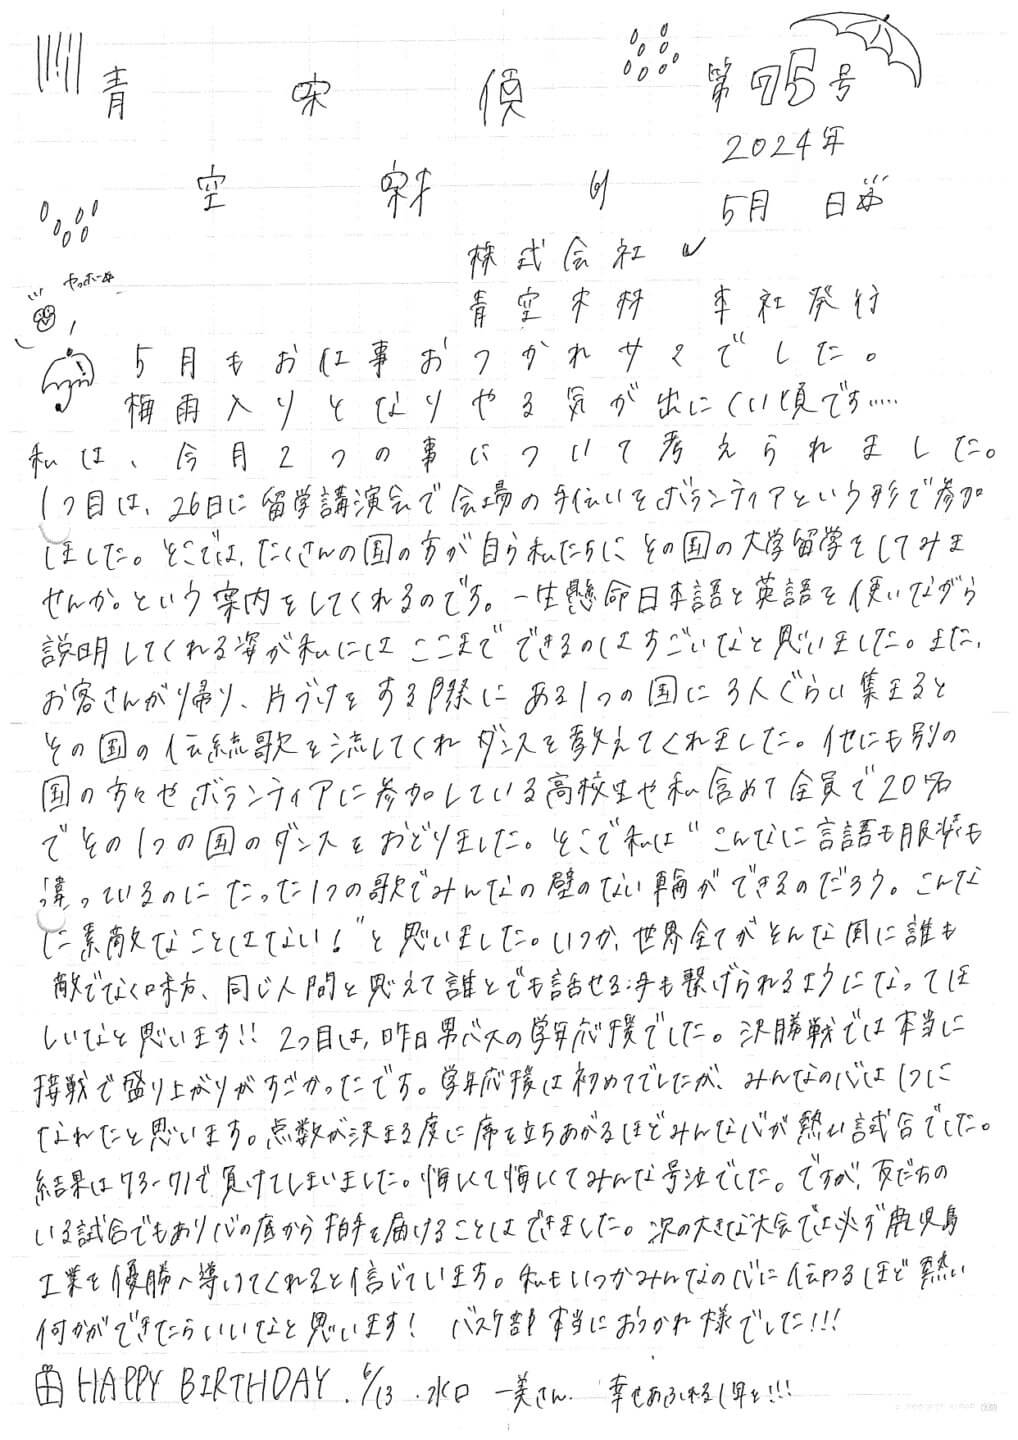 青 第75号
2024年
空 5月 日
株式会社
青空木材 本社発行
ヤッホー
5月もお仕事おつかれサマでした。
梅雨入りとなりやる気が出にくい頃です.....
私は、今月2つの事について考えられました。
1つ目は、26日に留学講演会で会場の手伝いをボランティアという形で参加
しました。そこでは、たくさんの国の方が自ら私たちに、その国の大学留学をしてみま
せんか。という案内をしてくれるのです。一生懸命日本語と英語を使いながら
説明してくれる姿が私にはここまでできるのはすごいなと思いました。また、
お客さんが帰り、片づけをする際にある1つの国に3人ぐらい集まると
その国の伝統歌を流してくれダンスを教えてくれました。他にも別の
国の方々やボランティアに参加している高校生や私含めて全員で20名
でその1つの国のダンスをおどりました。そこで私は"こんなに言語も服装も
違っているのにたった1つの歌でみんなの壁のない輪ができるのだろう。こんな
に素敵なことはない!"と思いました。いつか、世界全てがそんな国に誰も
敵でなく味方、同じ人間と思えて誰とでも話せる手も繋げられるようになってほ
しいなと思います!! 2つ目は、昨日男バスの学年応援でした。決勝戦では本当に
接戦で盛り上がりがすごかったです。学年応援は初めてでしたが、みんなの心は1つに
なれたと思います。点数が決まる度に席を立ちあがるほどみんな心が熱い試合でした。
結果は73-71で負けてしまいました。悔しくて悔しくてみんな号泣でした。ですが、友だちの
いる試合でもあり心の底から拍手を届けることはできました。次の大きな大会では必ず鹿児島
工業を優勝へ導いてくれると信じています。私もいつかみんなの心に伝わるほど熱い
何かができたらいいなと思います! バスケ部本当におつかれ様でした!!!
HAPPY BIRTHDAY. 6/13 ・水口 一美さん. 幸せあふれる1年を!!!